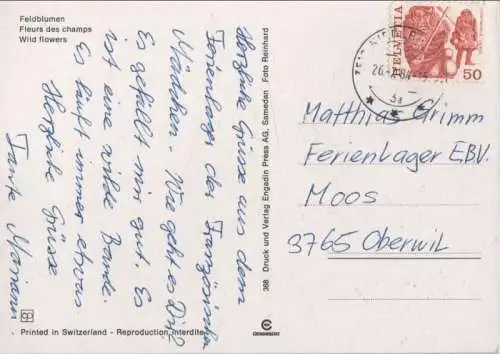 Feldblumen
Fleurs des champs
Wild flowers
Herzliche Grüsse aus dem
Ferienlager der Französischen
Mädchen. Wie geht es Dir?
Es gefällt mir gut. Es
ist eine wilde Bande.
Es läuft immer etwas.
Herzliche Grüsse
Tante Mariann
368 Druck und Verlag Engadin Press AG, Samedan Foto Reinhard
HELVETIA
50
Matthias Grimm
Ferienlager EBV.
Moos
3765 Oberwil
Printed in Switzerland - Reproduction interdite